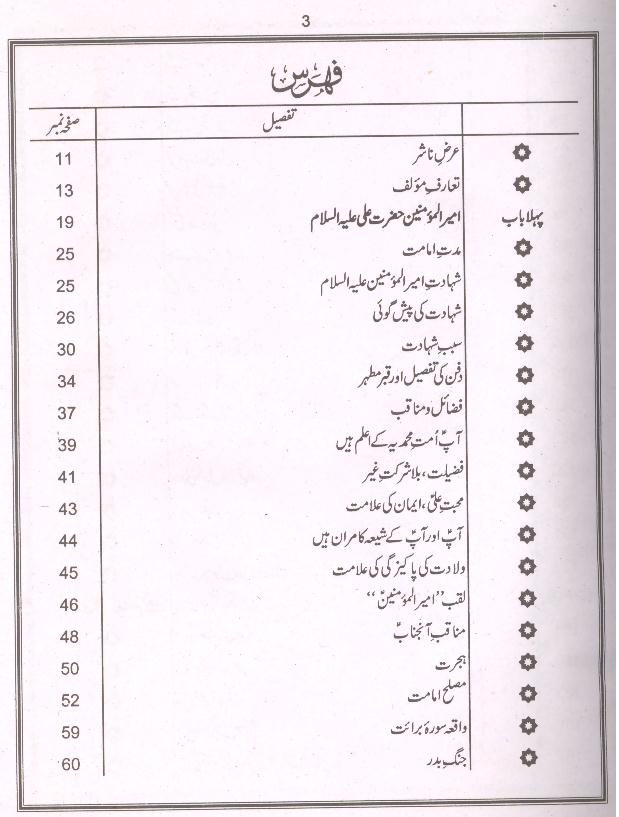 3
فہرس
تفصیل صفحہ نمبر
عرضِ ناشر 11
تعارفِ مؤلف 13
پہلا باب امیرالمؤمنین حضرت علی علیہ السلام 19
مدتِ امامت 25
شہادتِ امیرالمؤمنین علیہ السلام 25
شہادت کی پیش گوئی 26
سببِ شہادت 30
دفن کی تفصیل اور قبرِ مطہر 34
فضائل و مناقب 37
آپؑ اُمتِ محمدیہ کے اعلم ہیں 39
فضیلت، بلا شرکتِ غیر 41
محبتِ علیؑ، ایمان کی علامت 43
آپؑ اور آپؑ کے شیعہ کامران ہیں 44
ولادت کی پاکیزگی کی علامت 45
لقب ”امیرالمؤمنینؑ“ 46
مناقبِ آنجنابؑ 48
ہجرت 50
مصلح امامت 52
واقعہ سورۂ برائت 59
جنگِ بدر 60